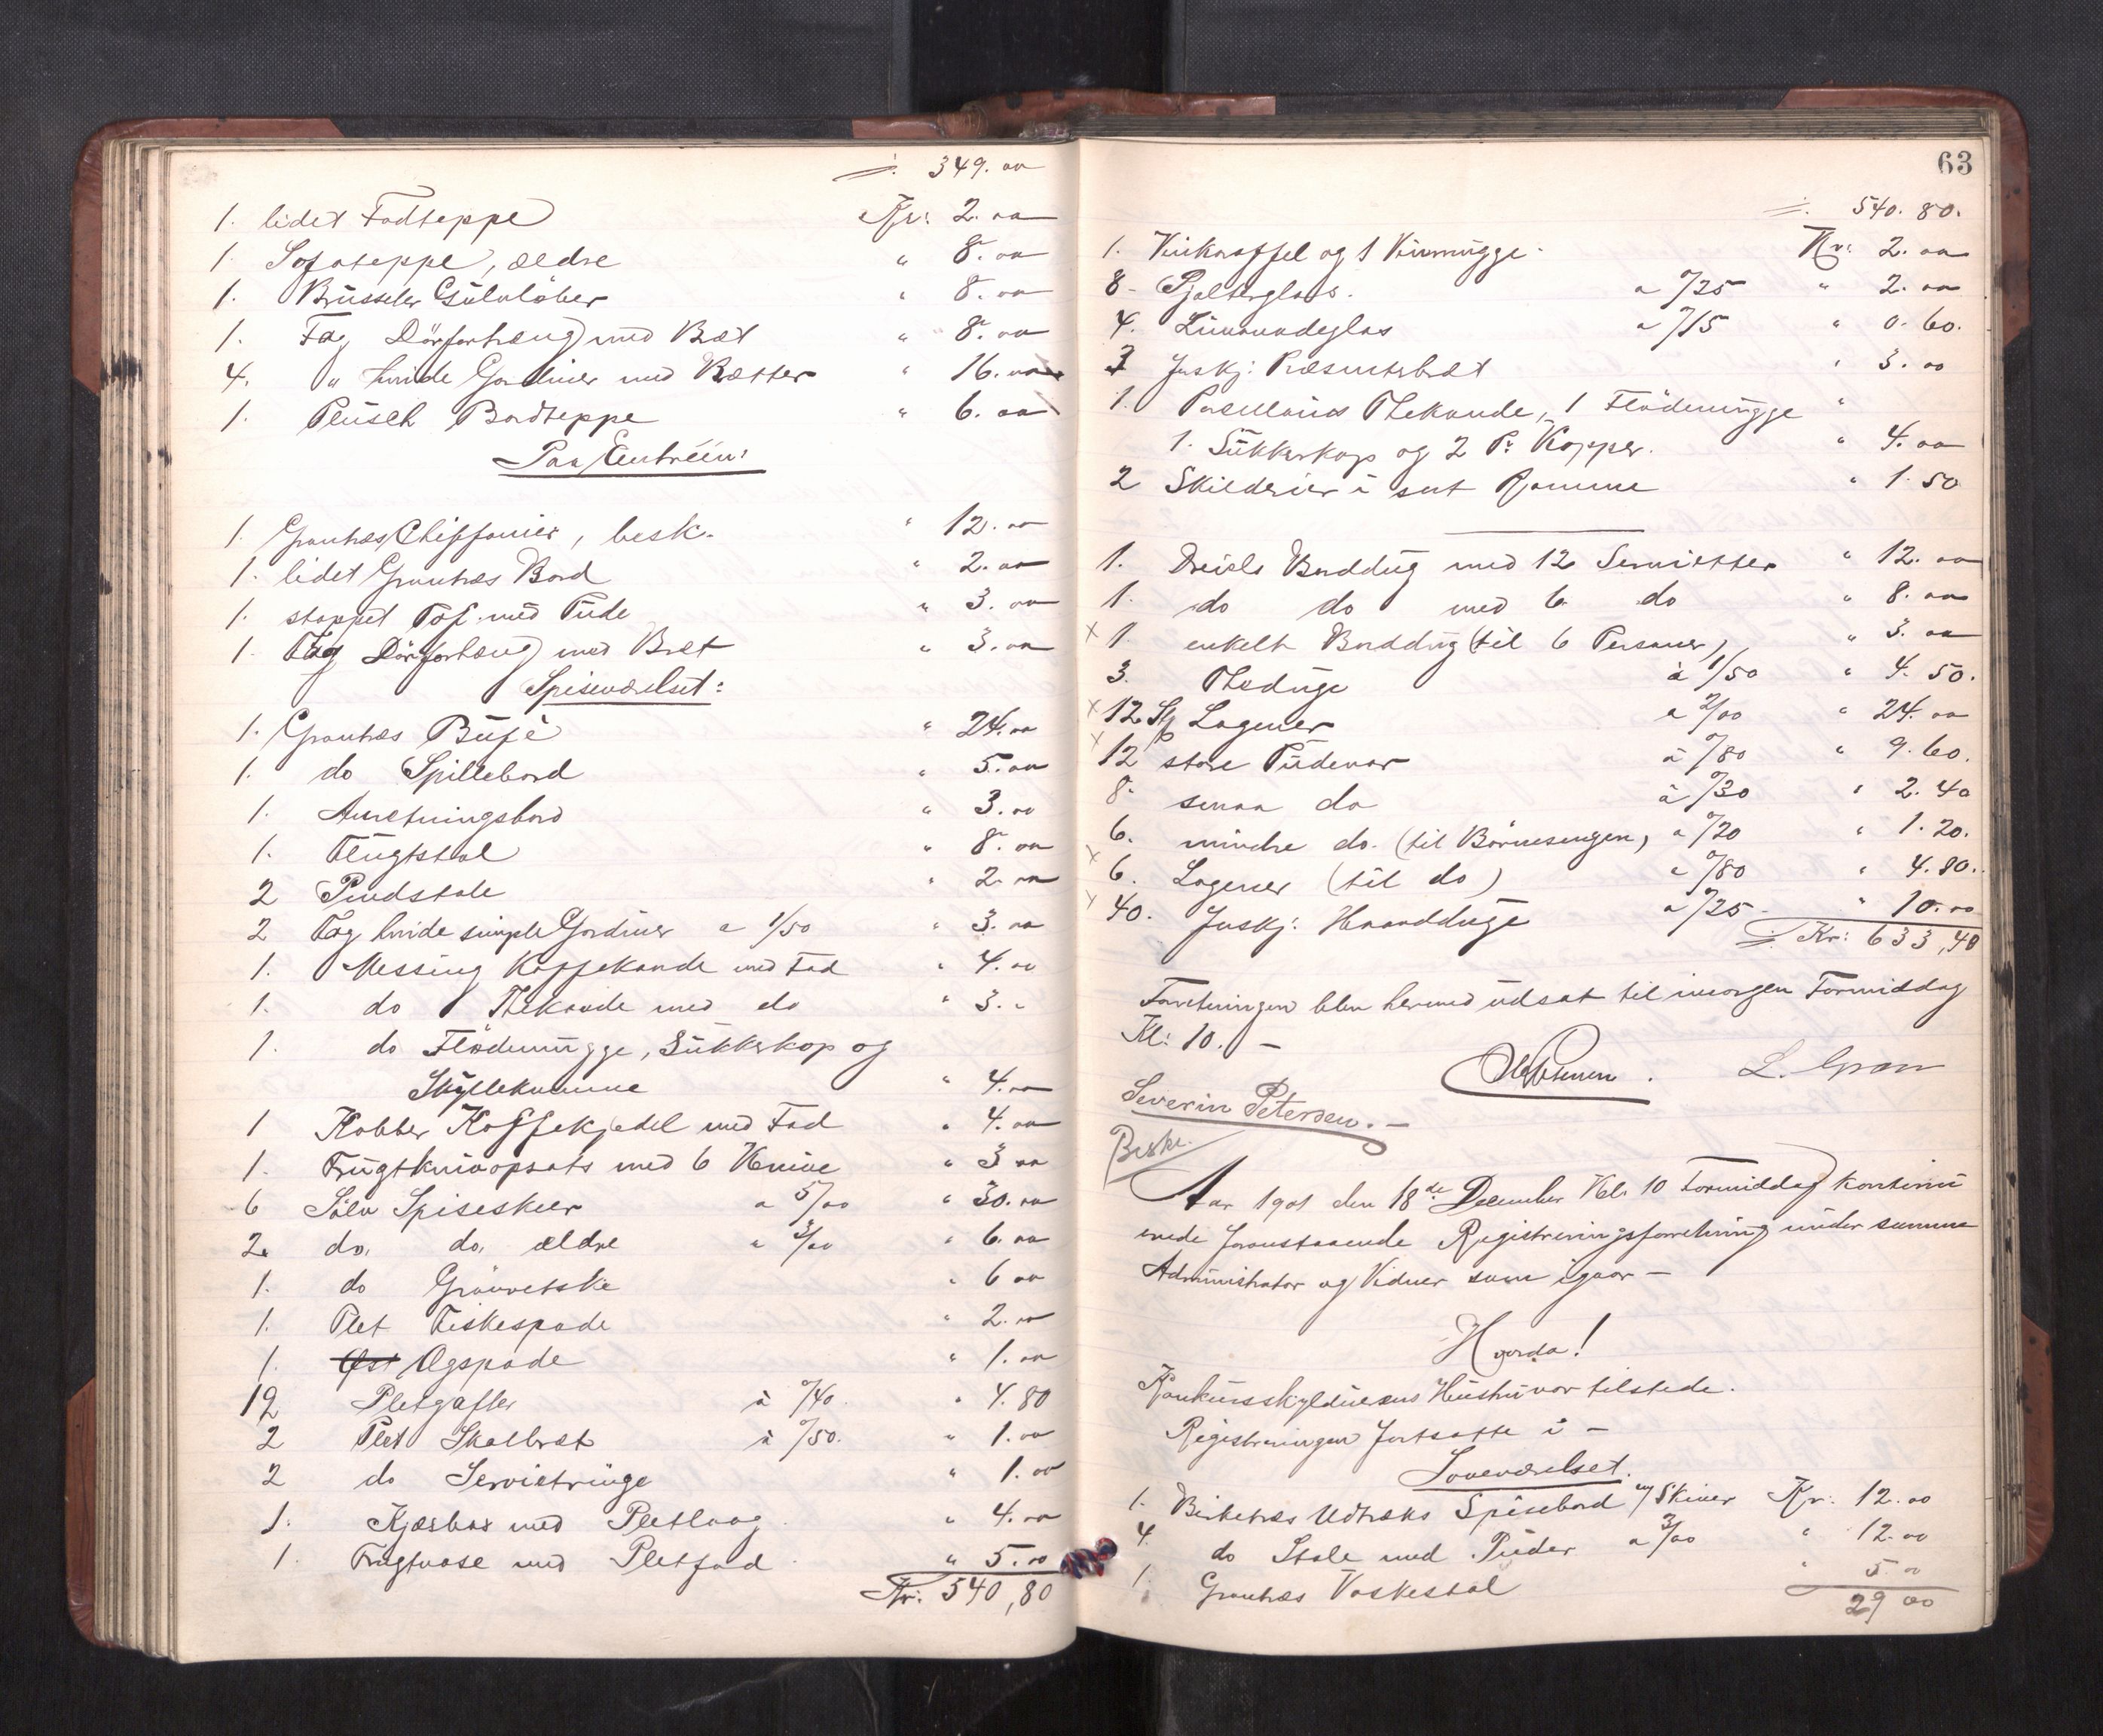 ÷. 349. 00
1. lidet Fodteppe Kr: 2. 00
1. Sofateppe, ældre " 8. 00
1. Brüsseler Gülvløber " 8. 00
1. Fag Dørforhæng med Bræt " 8. 00
4. " hvide Gardiner med Brætter " 16. 00
1. Plüsch Bordteppe " 6. 00
Paa Entréen:
1. Grantræs Chiffonier, besk. " 12. 00
1. lidet Grantræs Bord " 2. 00
1. stoppet Taf. med Pude " 3. 00
1. Fag Dørforhæng med Bræt " 3. 00
Spiseværelset:
1. Grantræs Büfé " 24. 00
1. do Spillebord " 5. 00
1. Anretningsbord " 3. 00
1. Flugtstol " 8. 00
2 Pindstole " 2. 00
2 Fag hvide simple Gardiner a 1/50 " 3. 00
1. Messing Kaffekande med Fad " 4. 00
1. do Thekande med do " 3. "
1. do Flødemügge, Sükkerkop og
Skyllekumme " 4. 00
1 Kobber Kaffekjedel med Fad " 4. 00
1. Frugtknivopsats med 6 Knive " 3 00
6 Sølv Spiseskeer a 5/00 " 30. 00
2. do. do. ældre a 3/00 " 6. 00
1. do Grøvetske " 6 00
1. Plet Fiskespade " 2. 00
1. Ost Ægspade " 1. 00
12 Pletgafler à 0/40. " 4. 80
2 Plet Skalbræt à 0/50. " 1. 00
2 do Servietringe " 1. 00
1. Kjæsbox med Pletlaag " 4. 00
1. Frugtvase med Pletfad " 5. 00
Kr: 540,80
63
÷. 540. 80.
1. Vinkaraffel og 1 Vinmügge. Kr: 2. 00
8 Pjolterglas. a 0/25 " 2. 00
4. Limonadeglas a 0/15 " 0. 60.
3 forskj: Præsenterbræt " 3. 00
1. Porcellains Thekande, 1 Flødemügge "
1. Sükkerkop og 2 Pr Kopper. " 4. 00
2 Skilderier i sort Ramme " 1. 50
1. Dreiels Borddug med 12 Servietter " 12. 00
1. do do med 6 do " 8. 00
x 1. enkelt Borddug (til 6 Personer) " 3. 00
3. Theduge à 1/50 " 4. 50.
x 12 St Lagener a 2/00 " 24. 00
x 12 store Püdevar à 0/80 " 9. 60.
8. smaa do à 0/30 " 2. 40
6. mindre do. (til Børnesengen) a 0/20 " 1. 20.
x 6. Lagener (til do) a 0/80 " 4. 80.
x 40. forskj: Haandduge a 0/25 " 10. 00
÷ Kr: 633,40
Forretningen blev hermed udsat til imorgen Formiddag
Kl: 10. –
L. Gran
Severin Petersen. –
Beskr.
Aar 1901 den 18de December Kl. 10 Formiddag kontinu
erede foranstaaende Registreringsforretning under samme
Administrator og Vidner som igaar –
Hvorda!
Konkursskyldnerens Hustru var tilstede.
Registreringen fortsatte i –
Soveværelset.
1. Birketræs Udtræks Spisebord m/ Skiner Kr: 12. 00
4. do Stole med Püder a 3/00 " 12. 00
1. Grantræs Vaskestol " 5 00
29 00